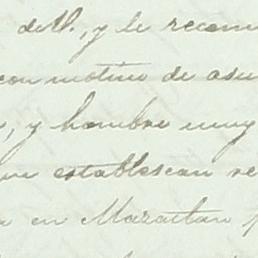 deth., y le recom
con motivo de asu
, y hombre muy
establescan re
en Mazatlan p